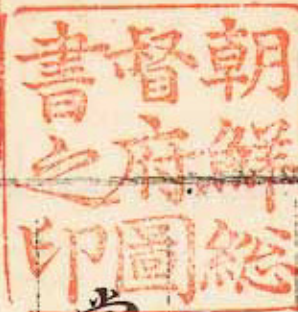 朝鮮総
督府圖
書之印